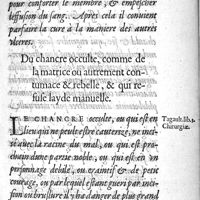 pour conforter le membre, & empescher
l'effusion du sang. Apres cela il conuient
parfaire la cure à la maniere des autres
ulceres.
Du chancre occulte, comme de
la matrice ou autrement con-
tumace & rebelle, & qui re-
fuse layde manuelle.
LE CHANCRE occulte, ou qui est en
lieu qui ne peult estre cauterizé, ne inci-
sé auec la racine du mal, ou qui est pro-
chain d'une partie noble, ou qui est en un
personnage debile, ou craintif & de petit
courage, ou par lequel estant gueri par inci-
sion ou bruslure il y ha danger de plus grand
Tagault.lib.1.
Chirurgiæ.